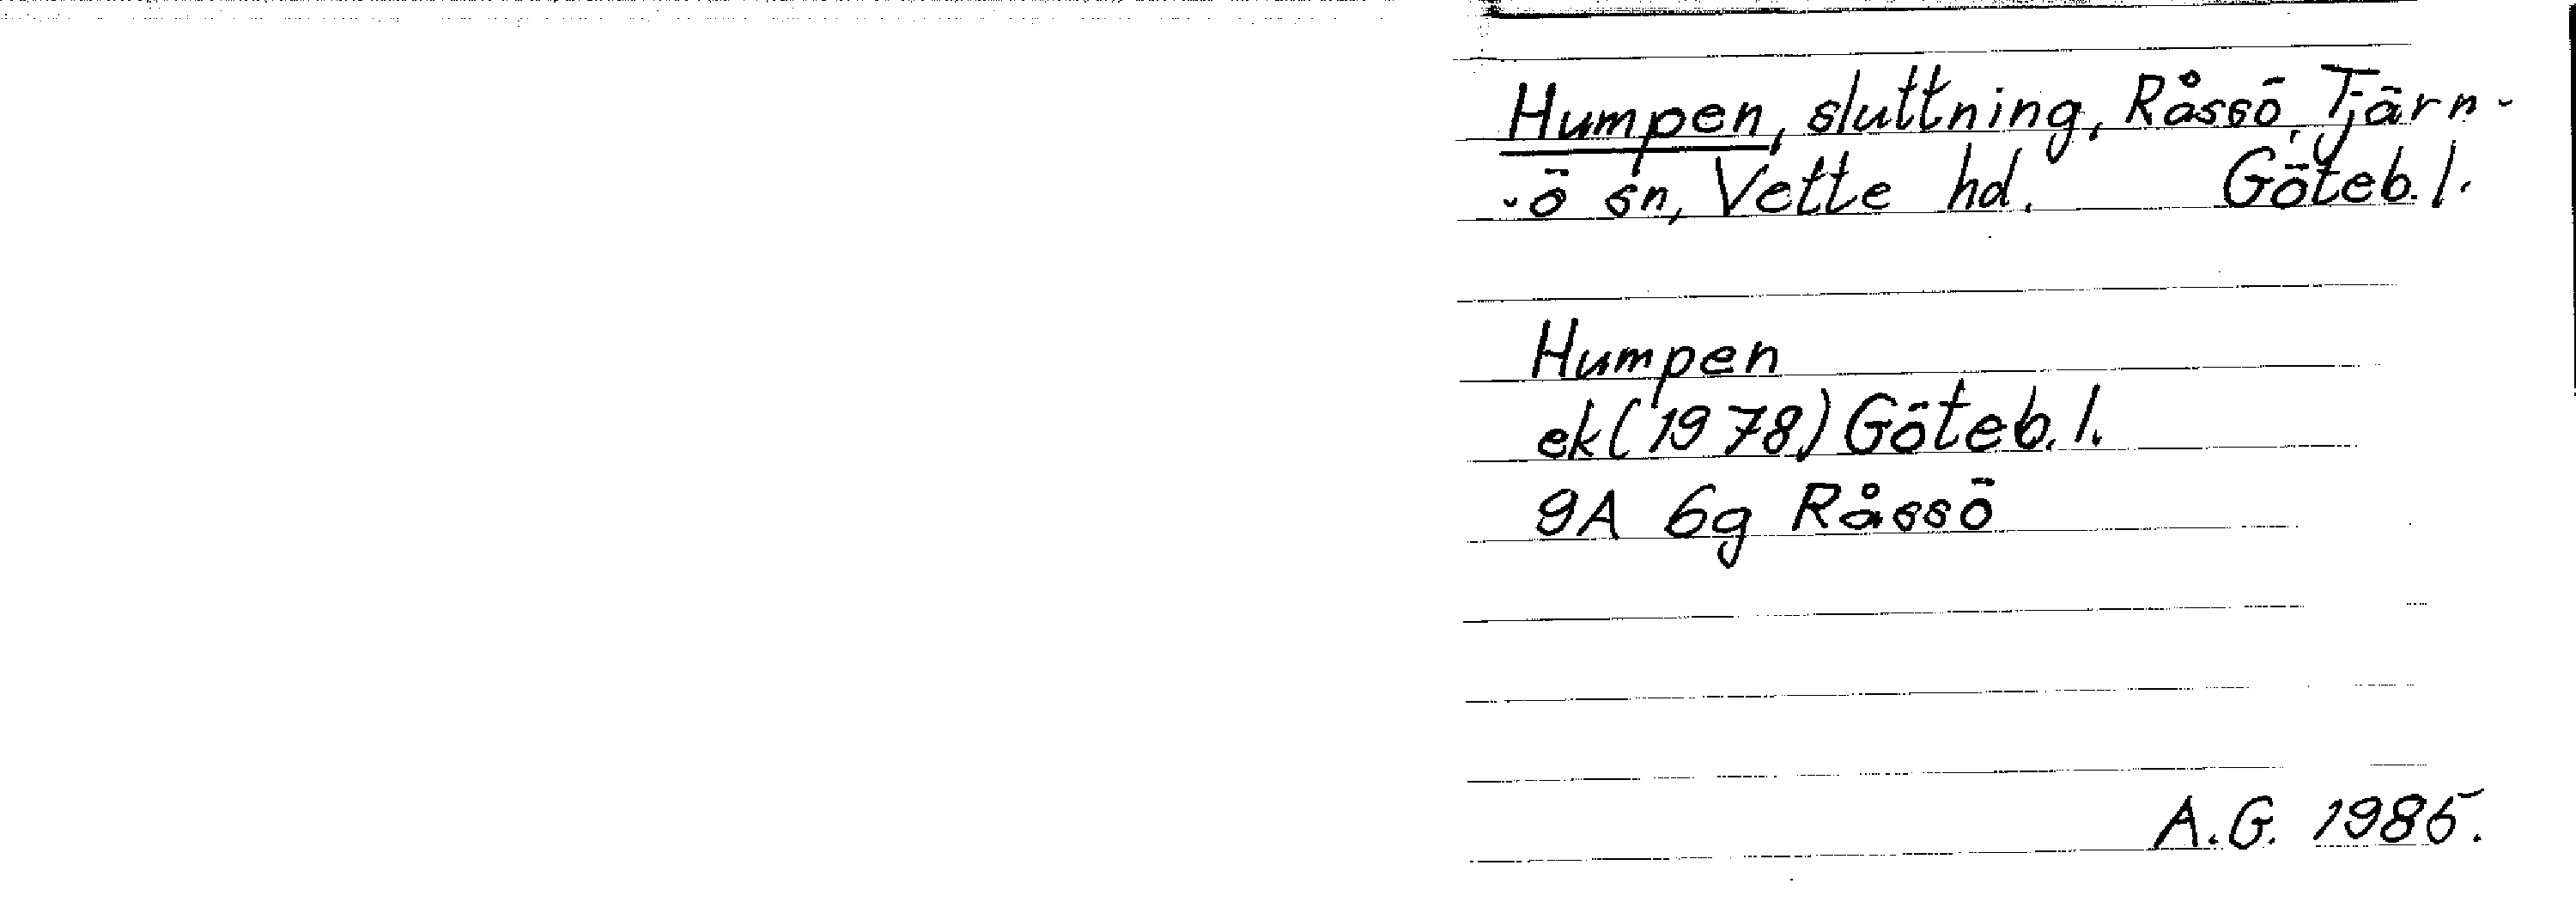 Humpen, sluttning, Råssö, Tjärn-
-ö sn, Vette hd. Göteb. l.
Humpen
ek (1978) Göteb. l.
9A 6g Råssö
A.G. 1985.